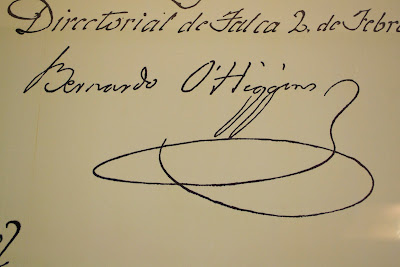 Directorial de Talca 2. de Febr
Bernardo O'Higgins